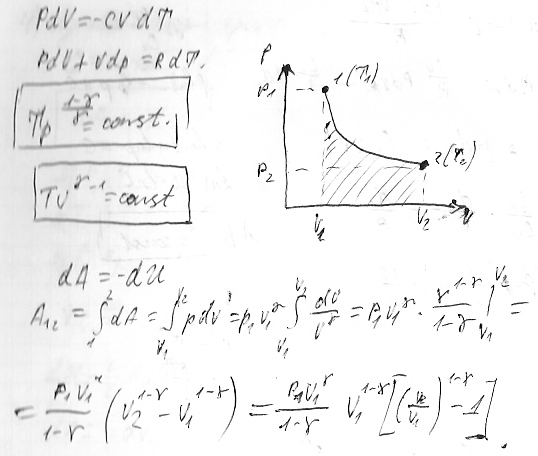 PdV=-CV dT
PdV+Vdp=RdT.
Tp^{\frac{1-γ}{γ}}=const.
TV^{γ-1}=const
P
P1
1(T1)
P2
2(T2)
V1
V2
V
dA=-dU
A_{12} = \int_1^2 dA = \int_{V_1}^{V_2} pdV = p_1 V_1^γ \int_{V_1}^{V_2} \frac{dV}{V^γ} = P_1 V_1^γ · \frac{V^{1-γ}}{1-γ} |_{V_1}^{V_2} =
= \frac{P_1 V_1^γ}{1-γ} (V_2^{1-γ} - V_1^{1-γ}) = \frac{P_1 V_1^γ}{1-γ} V_1^{1-γ} [(\frac{V_2}{V_1})^{1-γ} - 1].